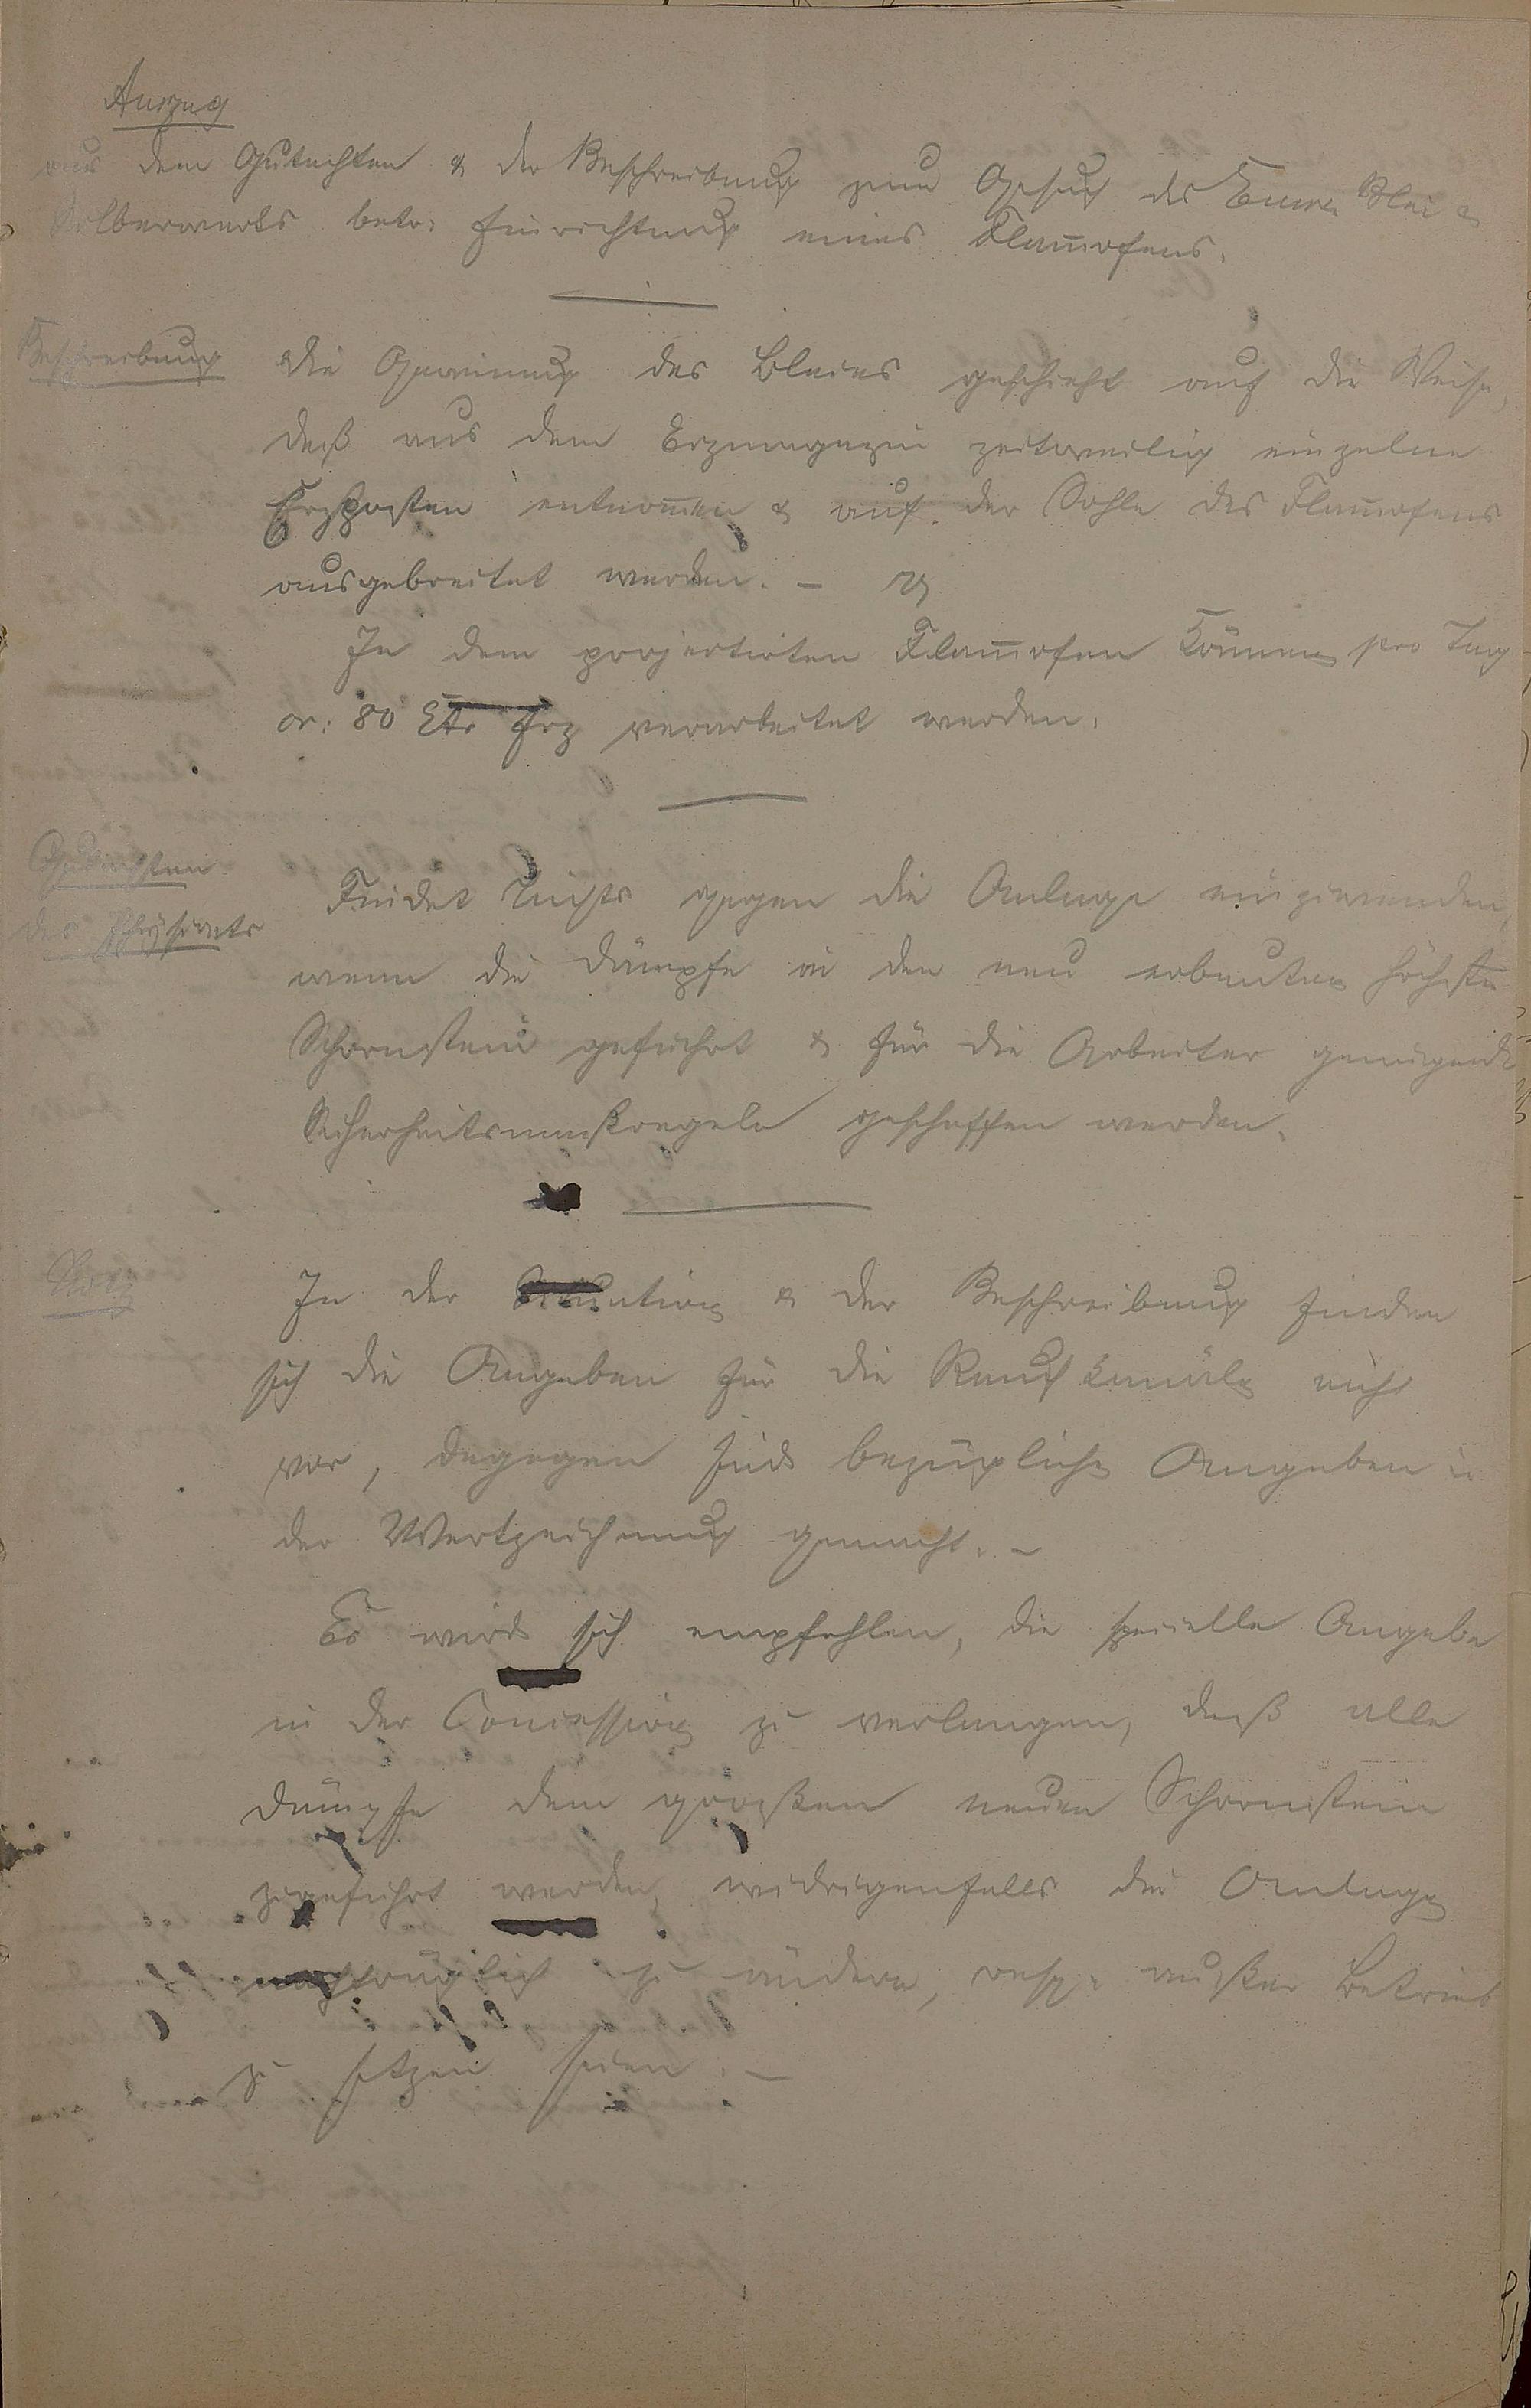 Auszug
aus dem Gutachten & der Beschreibung zum Gesuch des Emser Blei &
Silberwerks betr. Einrichtung eines Flam̄ofens.
Beschreibung Die Gewinnung des Bleies geschieht auf die Weise,
daß aus dem Erzmagazin zeitweilig einzelne
Erzposten entnom̄en & auf der Sohle des Flam̄ofens
ausgebreitet werden. –
In dem projectirten Flam̄ofen können pro Tag
cr: 80 Ctr Erz verarbeitet werden.
Gutachten
des Physicats
Findet Nichts gegen die Anlage einzuwenden,
wenn die Dämpfe in den neu erbauten höchsten
Schornstein geführt & für die Arbeiter genügende
Sicherheitsmaßregeln geschaffen werden.
Notiz
In der Situation & der Beschreibung finden
sich die Angaben für die Rauchkanäle nicht
vor, dagegen sind bezügliche Angaben in
der Werkzeichnung gemacht. –
Es wird sich empfehlen, die specielle Angabe
in der Concession zu verlangen, daß alle
Dämpfe dem großen neuen Schornstein
zugeführt werden, widrigenfalls die Anlage
nachträglich zu ändern, resp. außer Betrieb
zu setzen seien. –